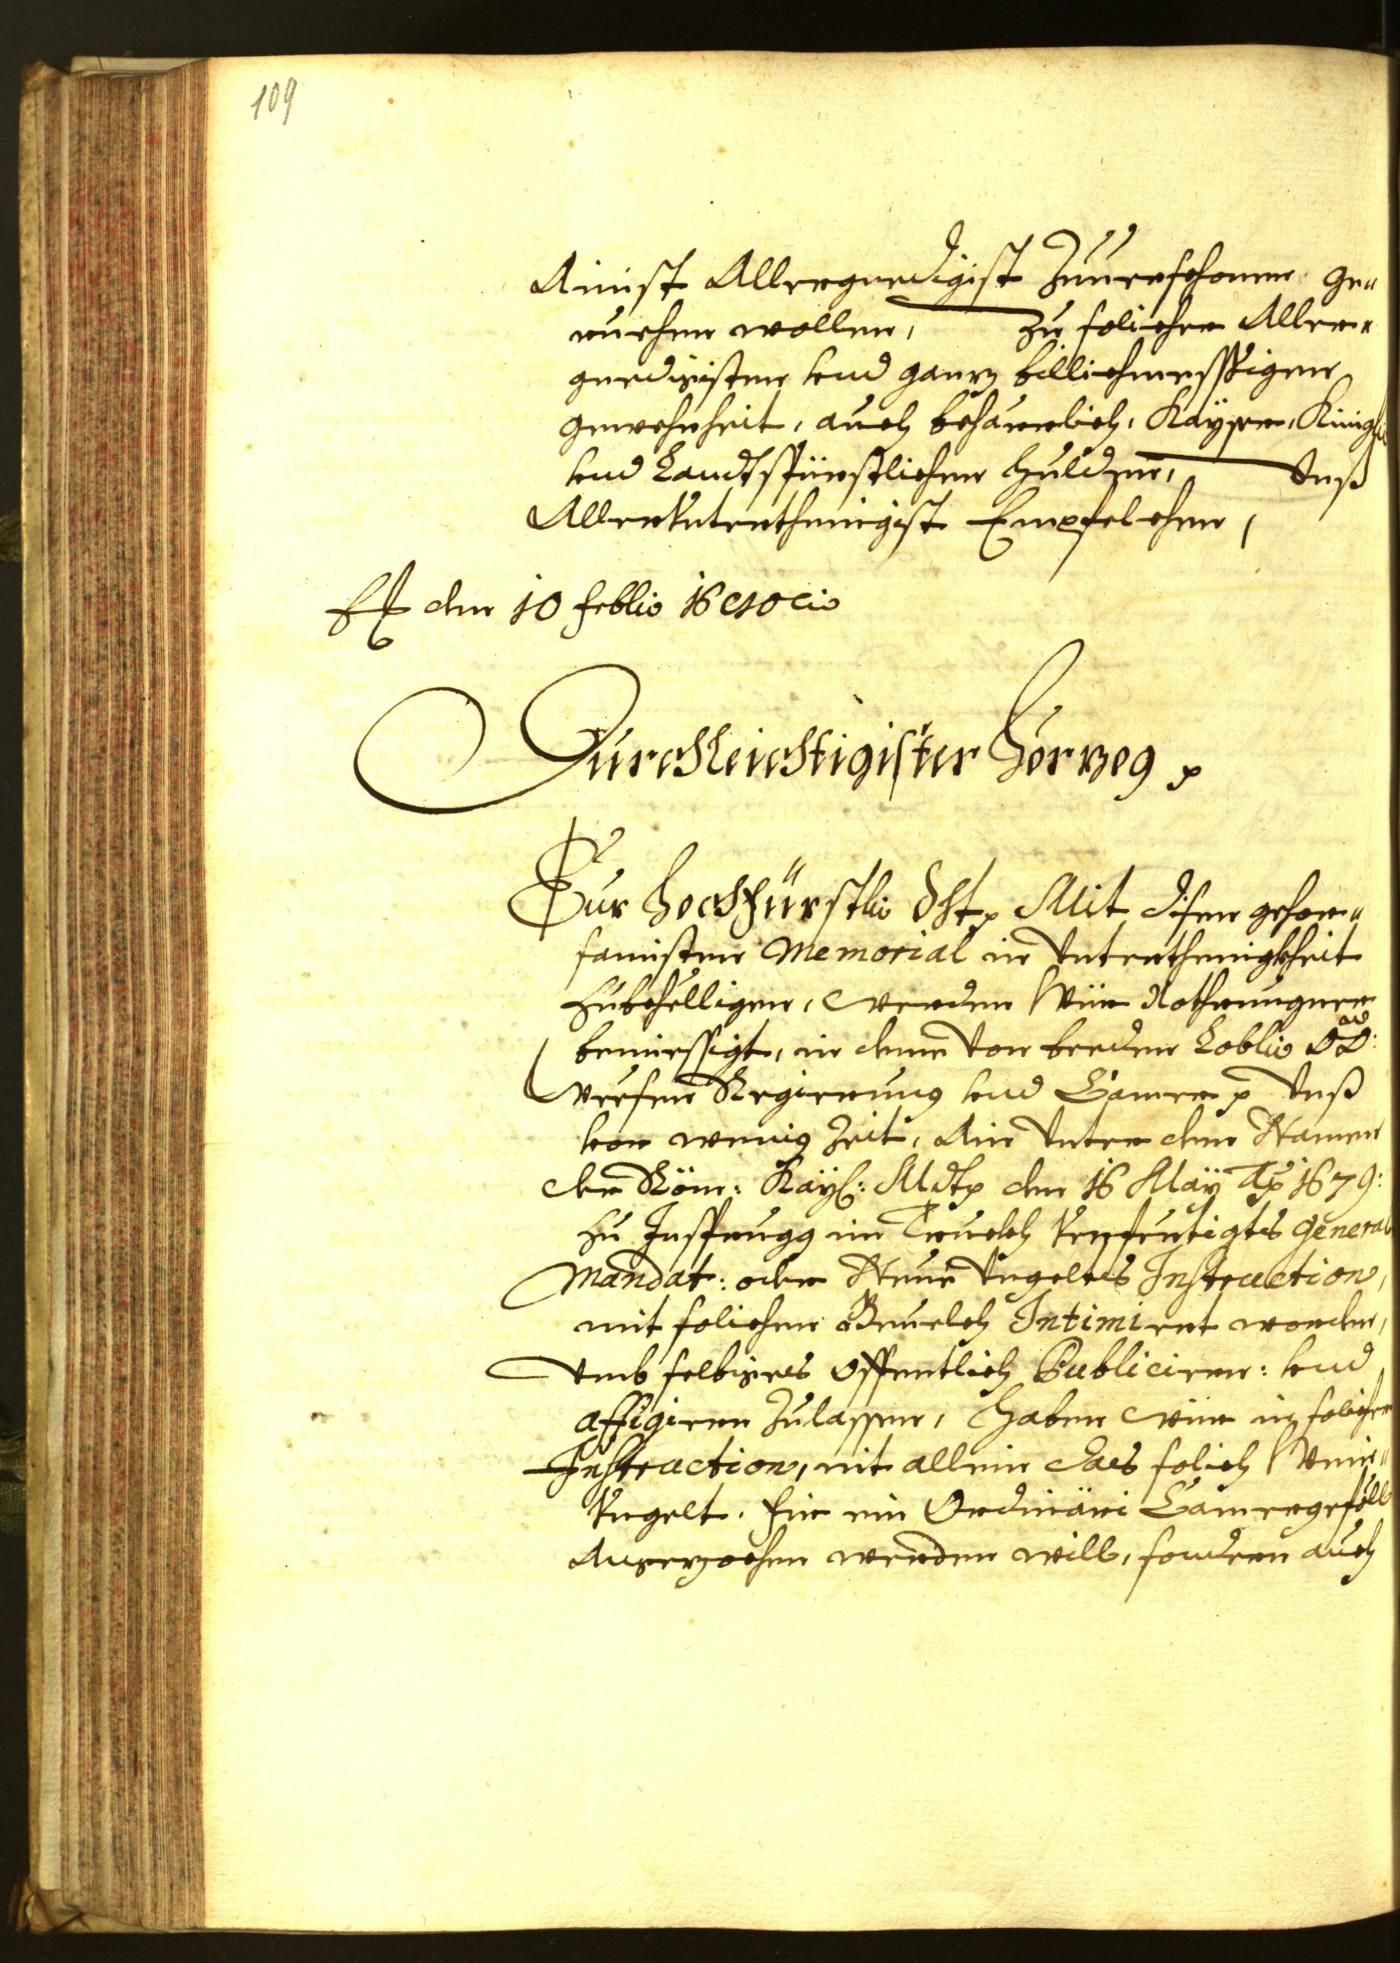 109
Ainist Allergnedigist zuuerschonen ge„
ruehen wollen, Zu solicher Aller„
gnedigisten vnd ganz billichmessigen
gewohnheit, auch beharrlich, Kayser, Künigl
vnd Landtsfürstlichen Hulden, Unß
Allerunterthenigist Empfelchen,
den 10 Feblio
Durchleichtigister Herzog
Eur Hochfürstlio Dht Mit disen gehor„
samisten Memorial in Unterthenigkheit
zubehelligen, werden Wür Nothtrungner
bemiessigt, in deme von beeden Loblio OÖ:
Wesen Regierung vnd Camer Unß
vor wenig Zeit, Ain Unter dem Namen
der Röm: Kayß: Mdt den 16 May Ao 1679:
zu Insprugg im Truckh verfertigts General
Mandat: oder Neue Ungelts Instruction,
mit solichen Beuelch Intimirt worden,
Umb selbiges offentlich Publiciren: vnd
affigiren zulassen, Haben wür in solicher
Instruction, nit allein das solich Wein„
Ungelt, für ein Ordinäri Camergeföll
Angezochen werden will, sondern auch